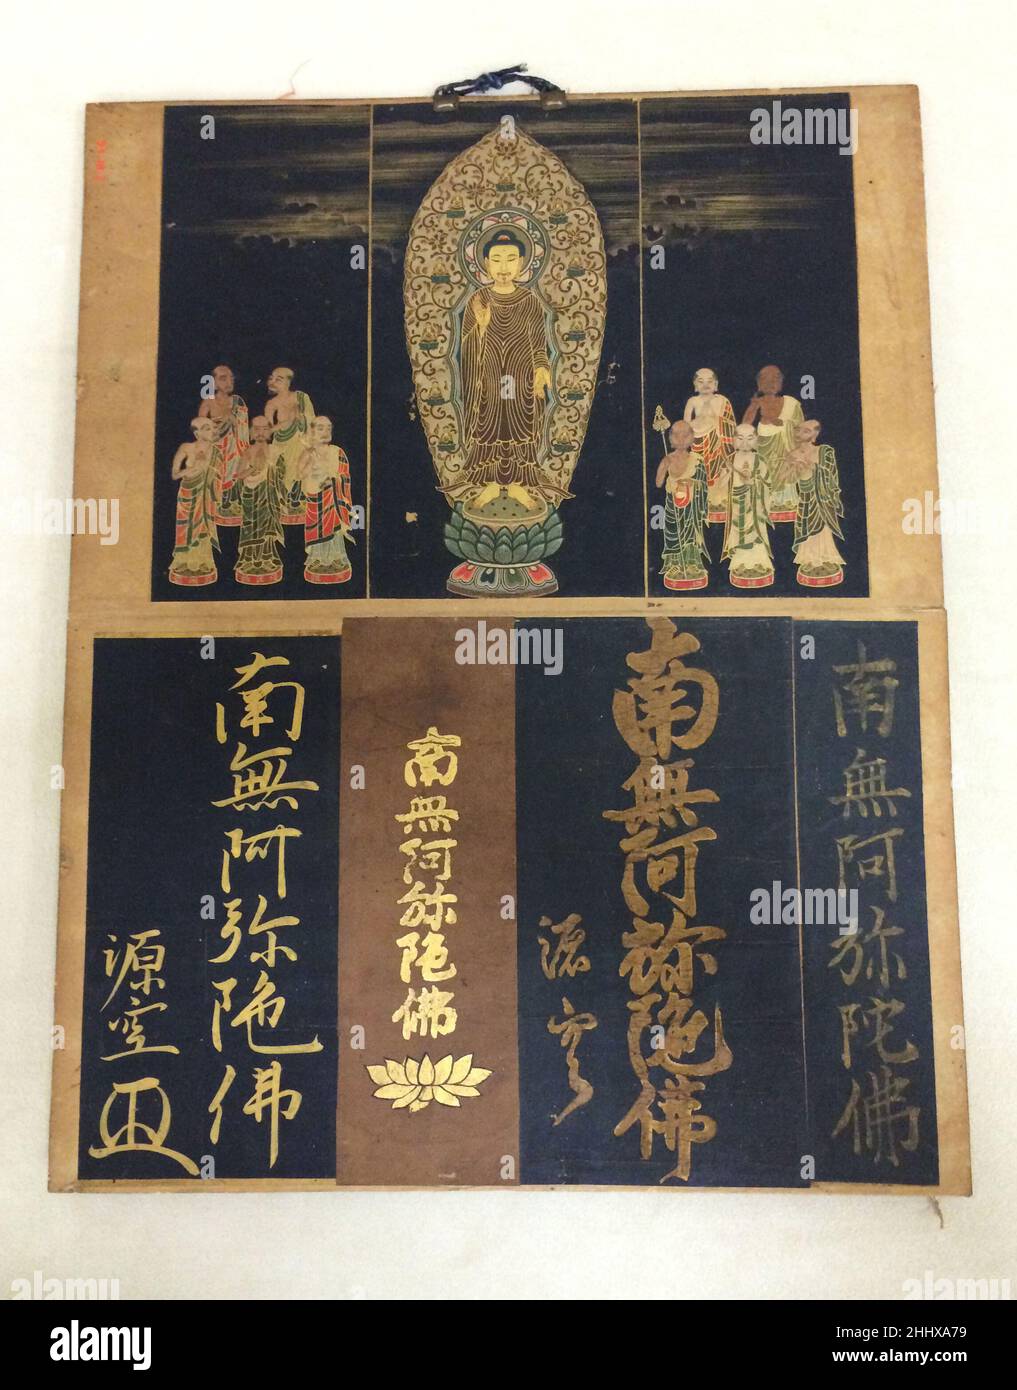 南無阿弥陀佛
南無阿弥陀佛
源空
南無阿弥陀佛
南無阿弥陀佛
源空
alamy
Image ID: 2HHXA79
www.alamy.com